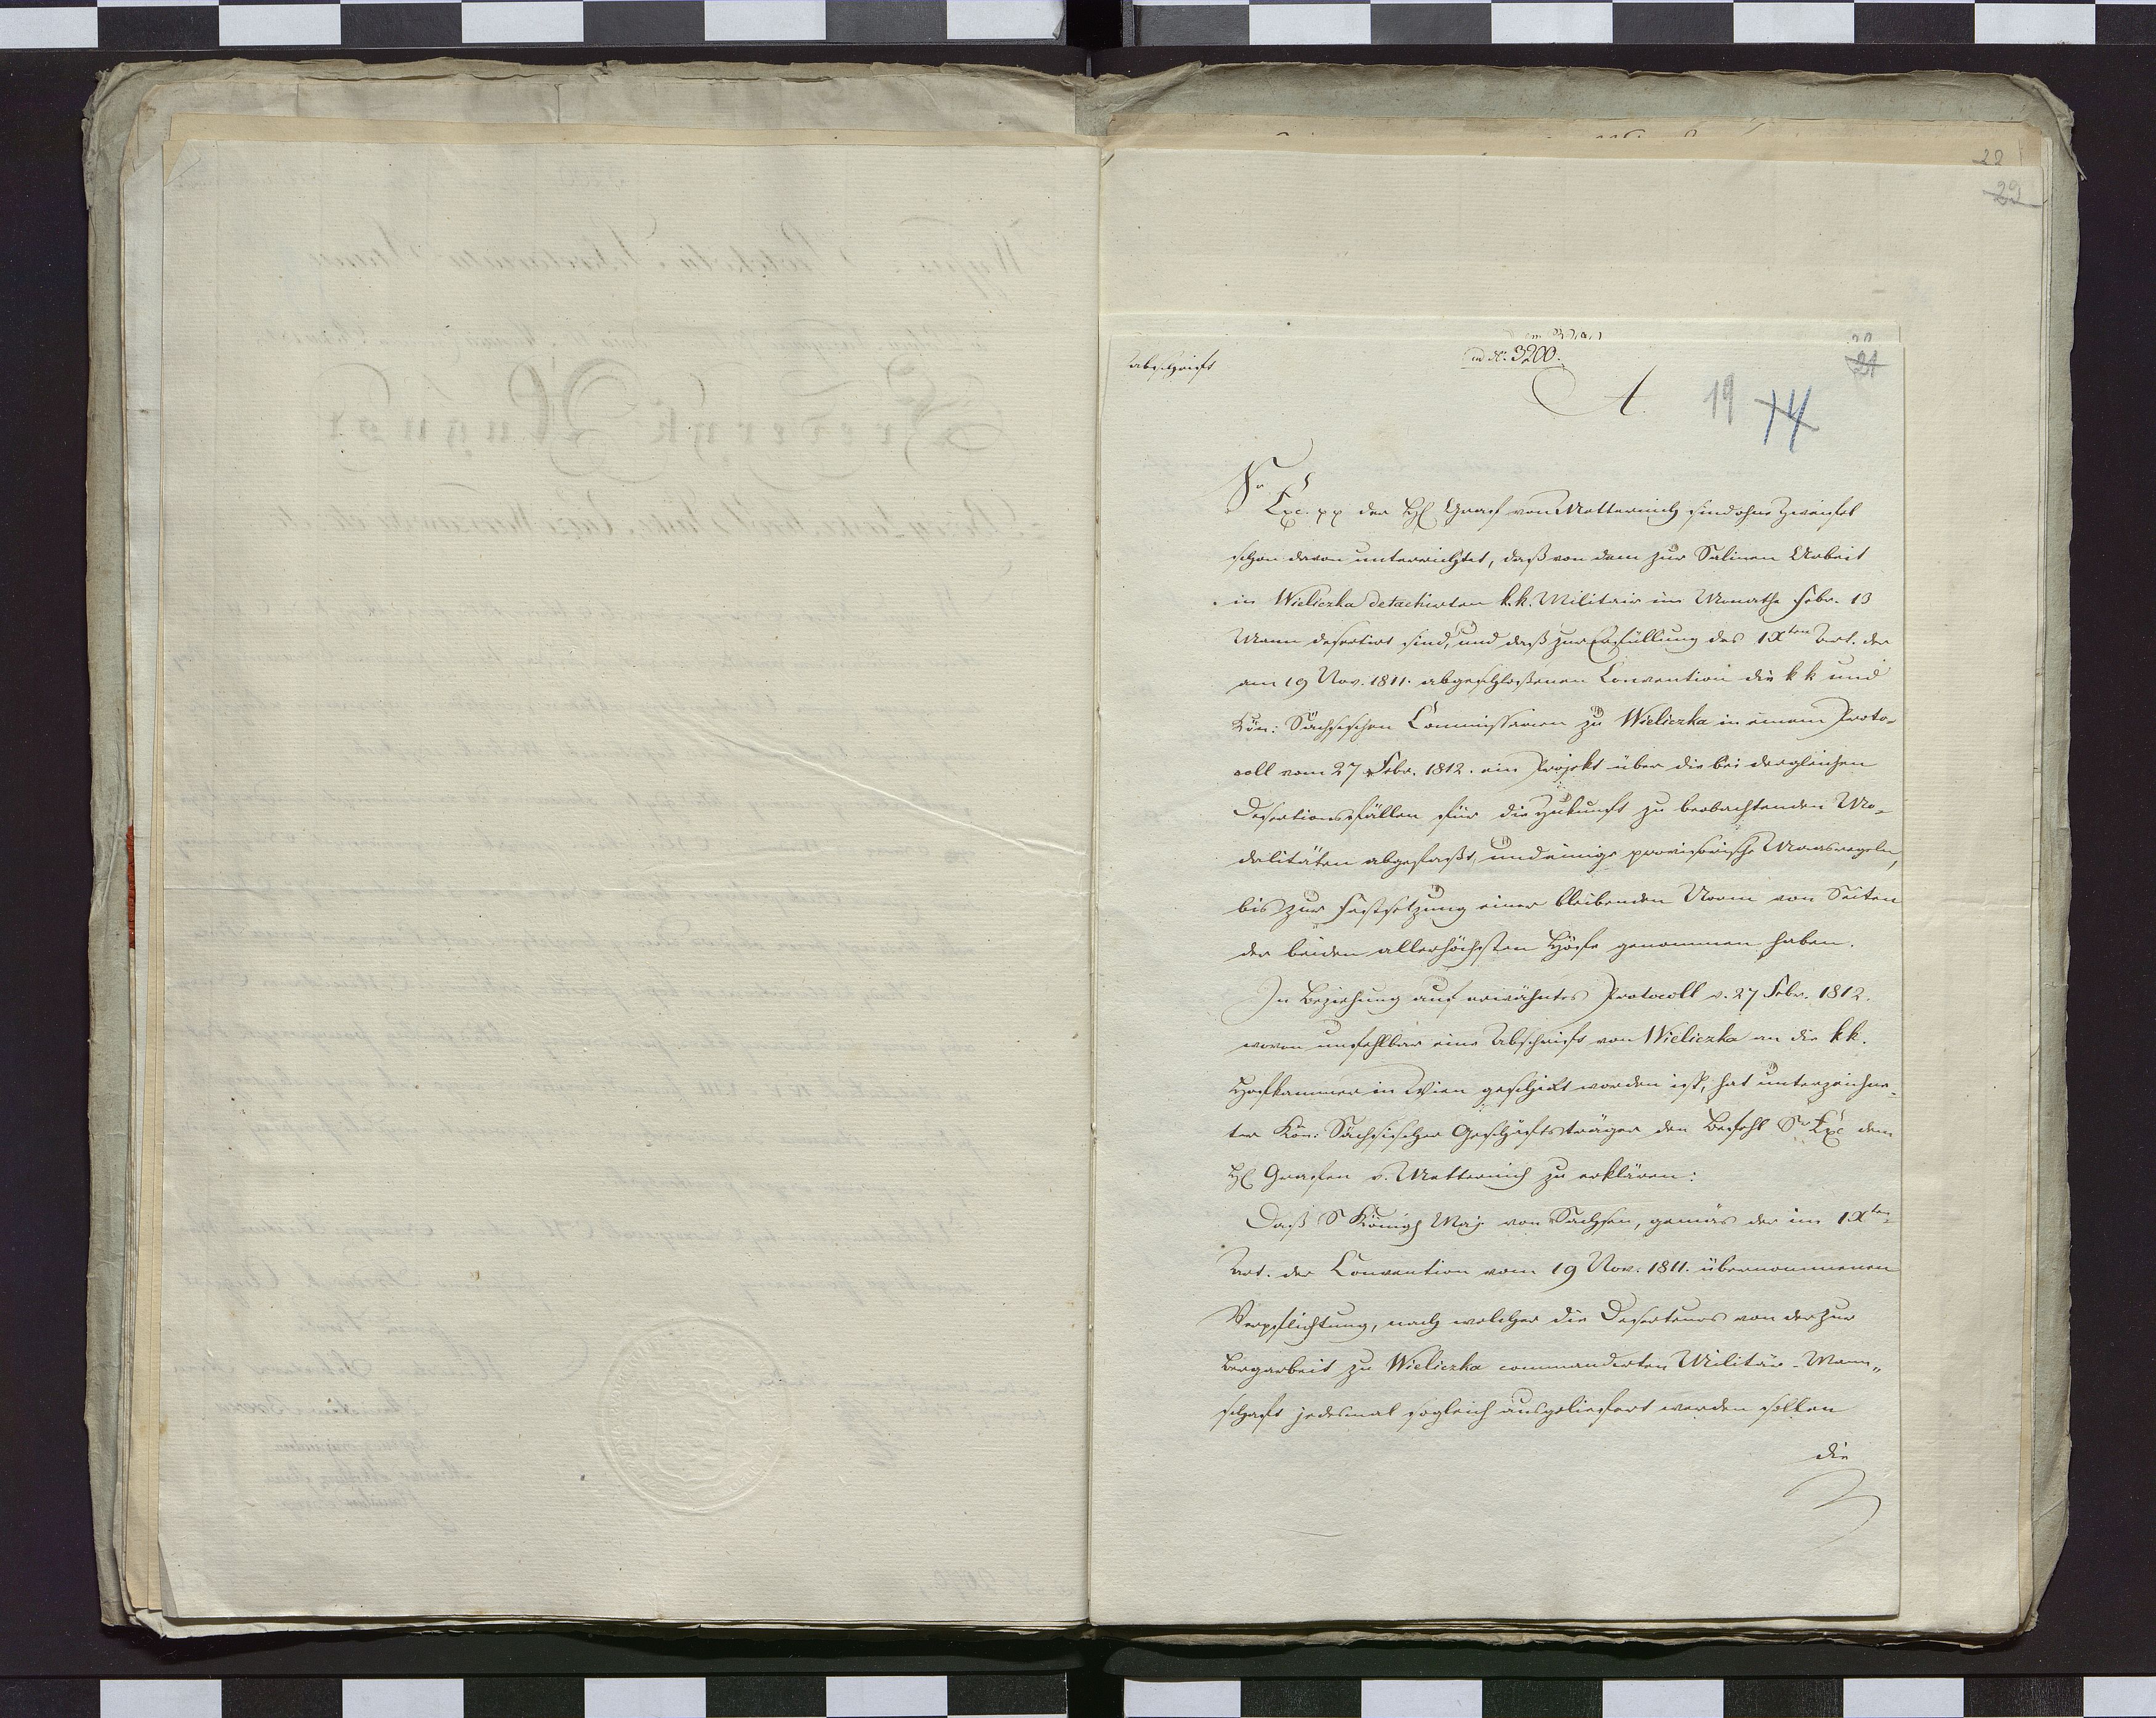 22
22
Abschrift
ad N. 3200.
A.
19
14
21
Sr
Exc. pp der H. Graf von Metternich sind ohne Zweifel
schon davon unterrichtet, daß von dem zur Salinen Arbeit
in Wieliczka detachirten k.k. Militair im Monathe Febr. 13
Mann desertirt sind, und daß zur Erfüllung des IXten Art. der
am 19 Nov. 1811. abgeschloßenen Convention die k k und
Kön: Sächsischen Commissarien zu Wieliczka in einem Proto-
coll vom 27 Febr. 1812. ein Projekt über die bei dergleichen
Desertionsfällen für die Zukunft zu beobachtenden Mo-
dalitäten abgefaßt, und einige provisorische Maasregeln,
bis zur Festsetzung einer bleibenden Norm von Seiten
der beiden allerhöchsten Höfe genommen haben.
In Beziehung auf erwähntes Protocoll v. 27 Febr. 1812.
wovon unfehlbar eine Abschrift von Wieliczka an die kk.
Hofkammer in Wien geschickt worden ist, hat unterzeichne-
ter Kön: Sächsischer Geschäftsträger den Befehl Sr Exc dem
H. Grafen v. Metternich zu erklären:
Daß S Königl Maj von Sachsen, gemäs der im IXten
Art. der Convention vom 19 Nov. 1811. übernommenen
Verpflichtung, nach welcher die Deserteurs von der zur
Bergarbeit zu Wieliczka commandirten Militär-Mann-
schaft jedesmal sogleich ausgeliefert werden sollen
die